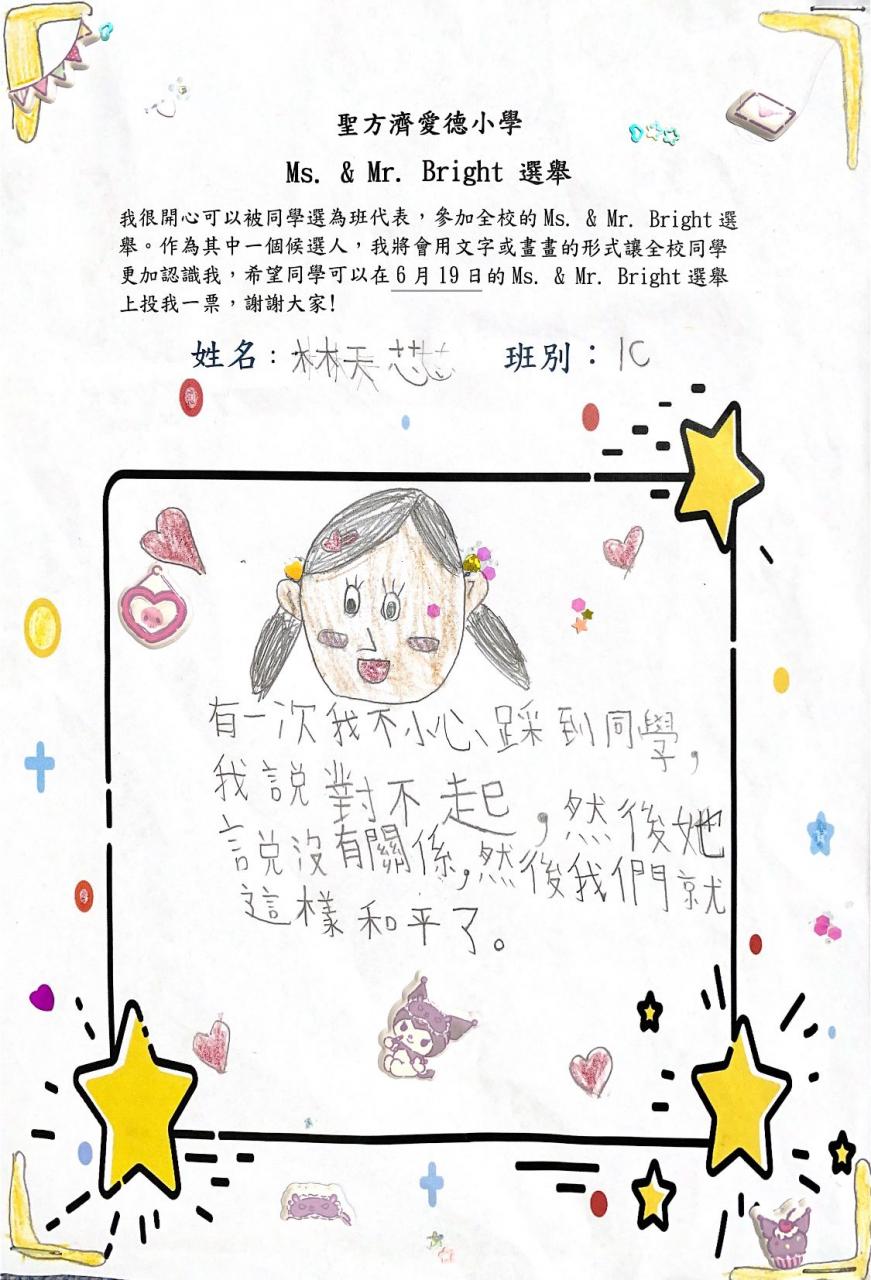 聖方濟愛德小學
Ms. & Mr. Bright 選舉
我很開心可以被同學選為班代表，參加全校的 Ms. & Mr. Bright 選
舉。作為其中一個候選人，我將會用文字或畫畫的形式讓全校同學
更加認識我，希望同學可以在 6 月 19 日的 Ms. & Mr. Bright 選舉
上投我一票，謝謝大家!
姓名：林天芯 班別：1C
有一次我不小心、踩到同學，
我說對不起，然後她
說沒有關係，然後我們就
這樣和平了。